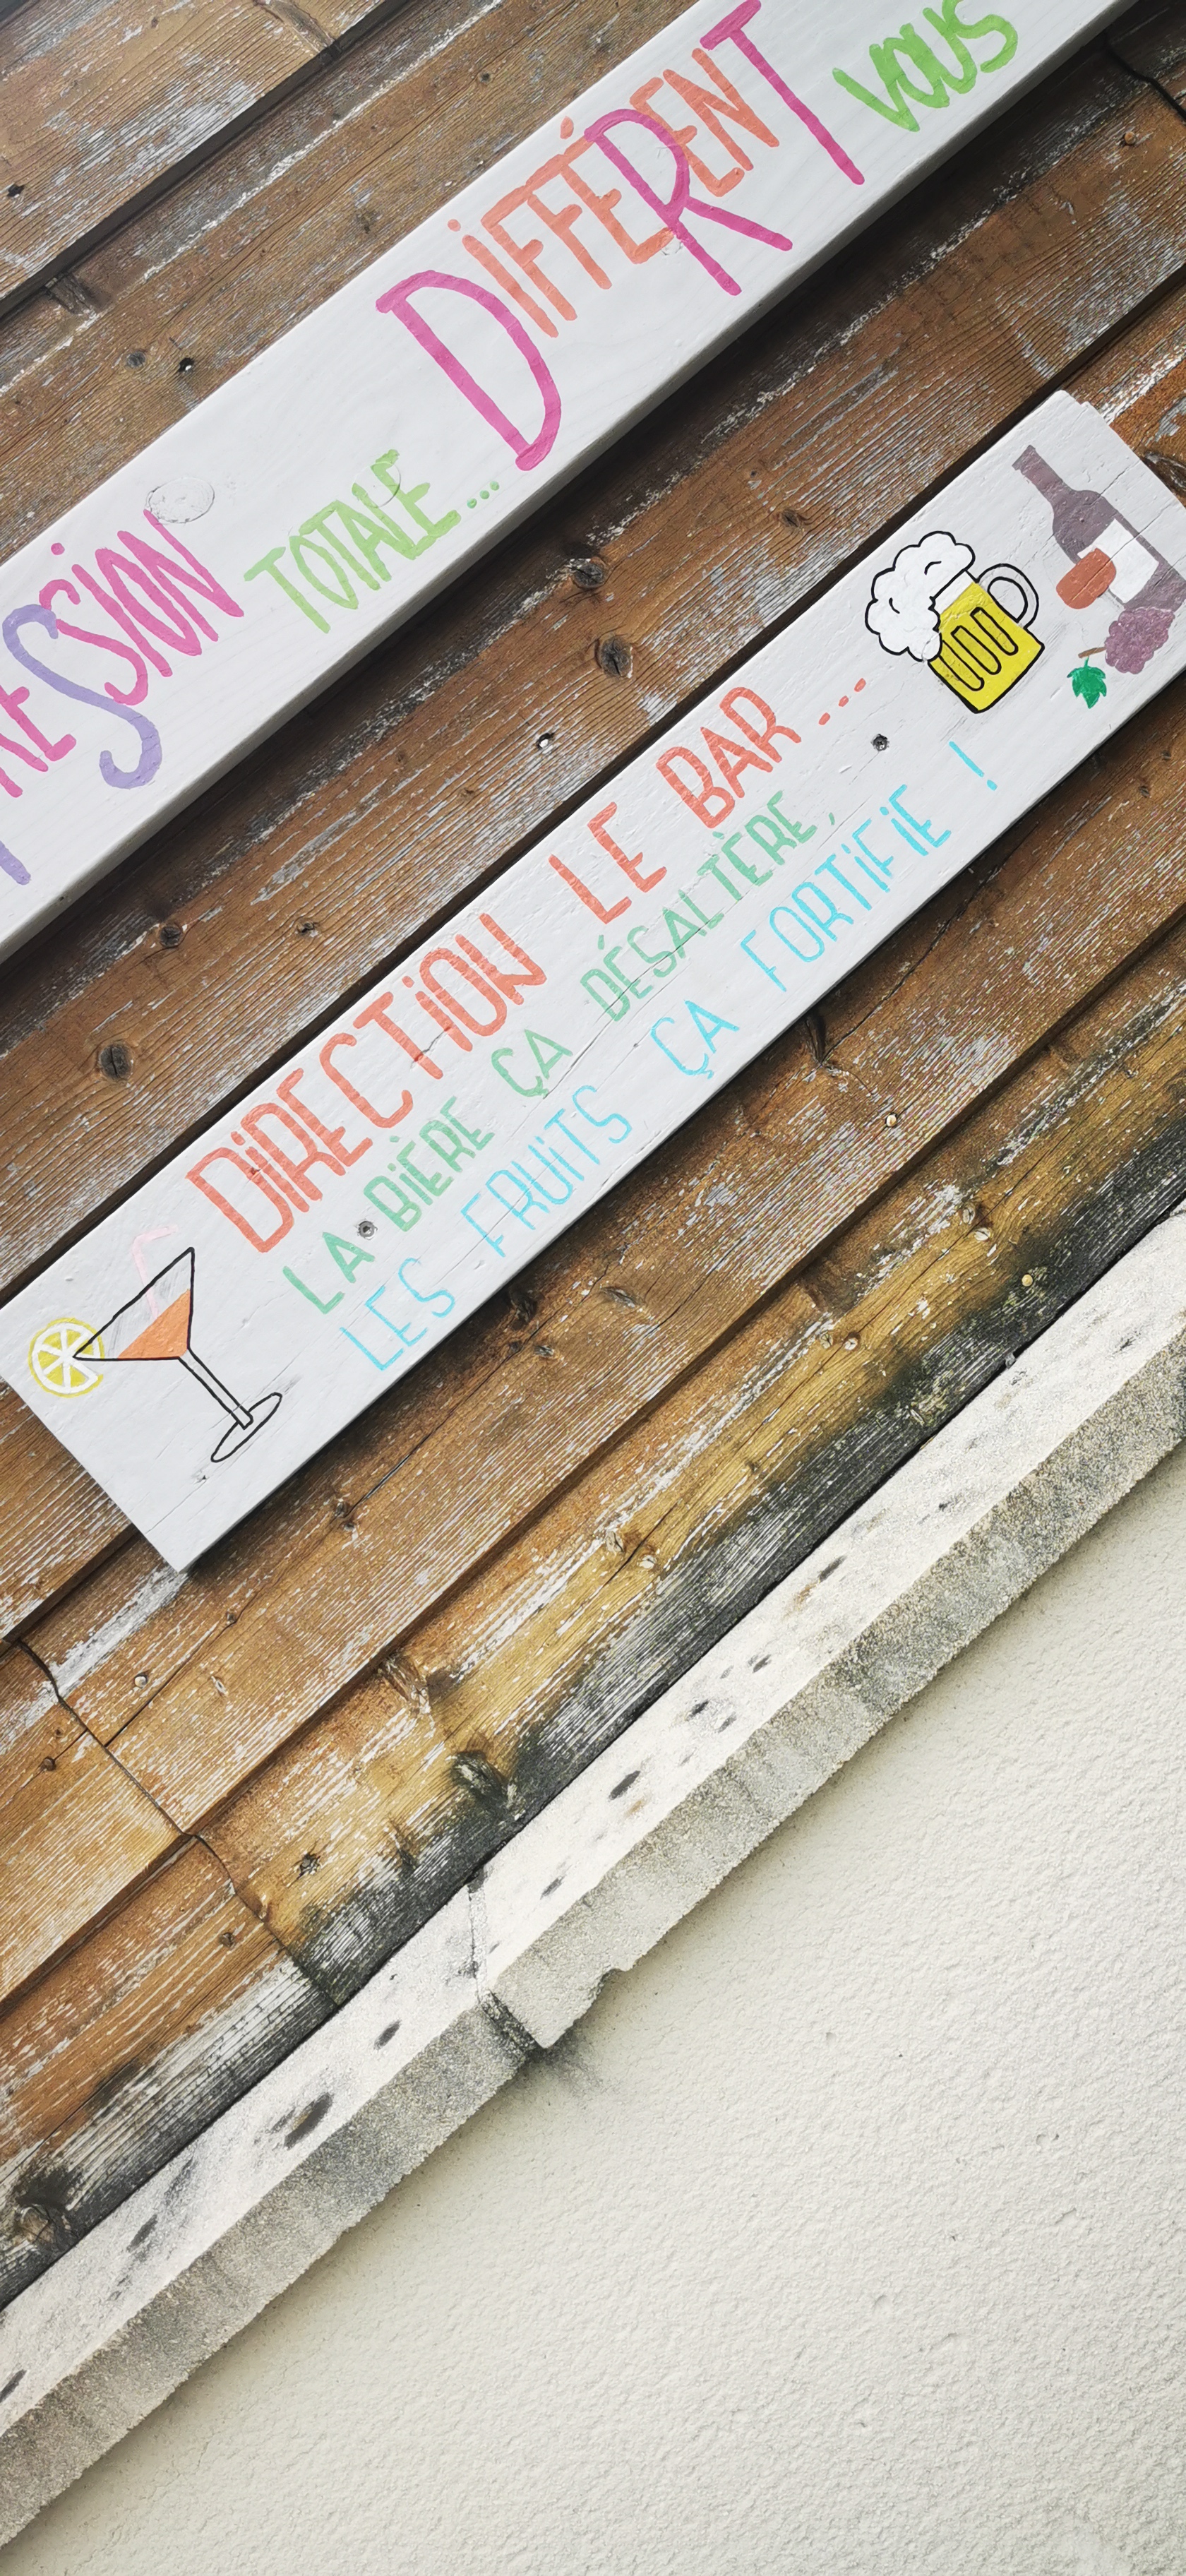 TOTALE... DIFFÉRENT VOUS
DIRECTION LE BAR...
LA BIÈRE ÇA DÉSALTÈRE,
LES FRUITS ÇA FORTIFIE !